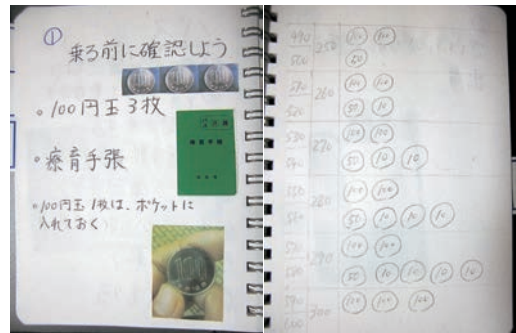 ①
乗る前に確認しよう
100
100
100
。100円玉3枚
療育手張
。療育手張
。100円玉1枚は、ポケットに
入れておく
100
490 250 100 100
500 50
260 100 100
50 10
270 100 100
50 10 10
280 100 100
50 10 10 10
290 100 100
50 10 10 10 10
300 100 100 100